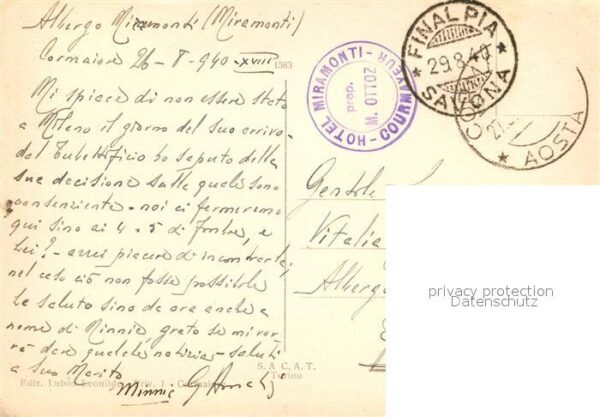 Albergo Miramonti (Miramonti)
Cormaiore 26-8-940-XVIII
1583
Mi spiace di non essere stato
a Milano il giorno del suo arrivo
dal Tubettificio ho saputo della
sua decisione sulla quale sono
consenziente - noi ci fermeremo
qui sino ai 4-5 di e
Lei? - avrei piacere di incontrarla;
nel caso ciò non fosse possibile
La saluto sino da ora anche a
nome di Minnie, grato se mi vor-
rà dare qualche notizia - saluti
a suo Marito
Minnie G
Ediz. Lubos Leonilde
S.A.C.A.T.
Torino
HOTEL MIRAMONTI - COURMAYEUR
prop.
M. OTTOZ
FINALPIA
29.8.40
SAVONA
AOSTA
Gentile
Vitalia
Albergo
privacy protection
Datenschutz